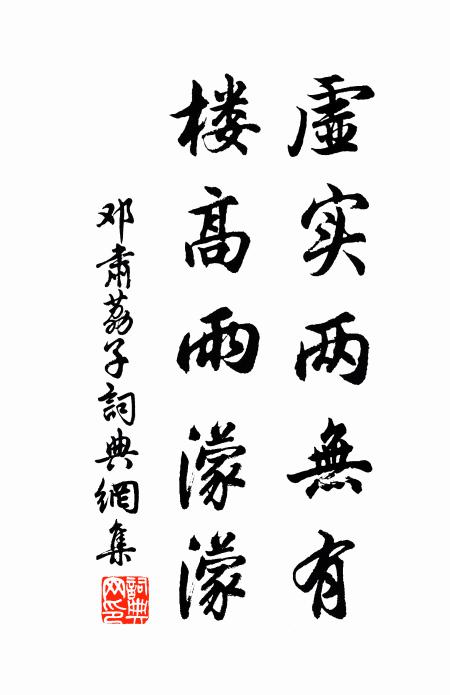 虚实两無有
楼高雨濛濛
邓肃荔子詞典網集
詞典網印